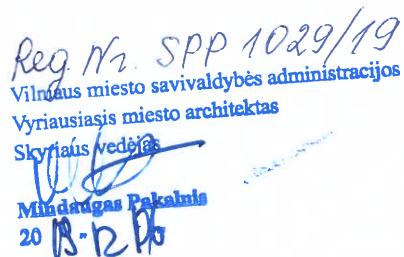 Reg. Nr. SPP 1029/19
Vilniaus miesto savivaldybės administracijos
Vyriausiasis miesto architektas
Skyriaus vedėjas
Mindaugas Pakalnis
20 19-12-